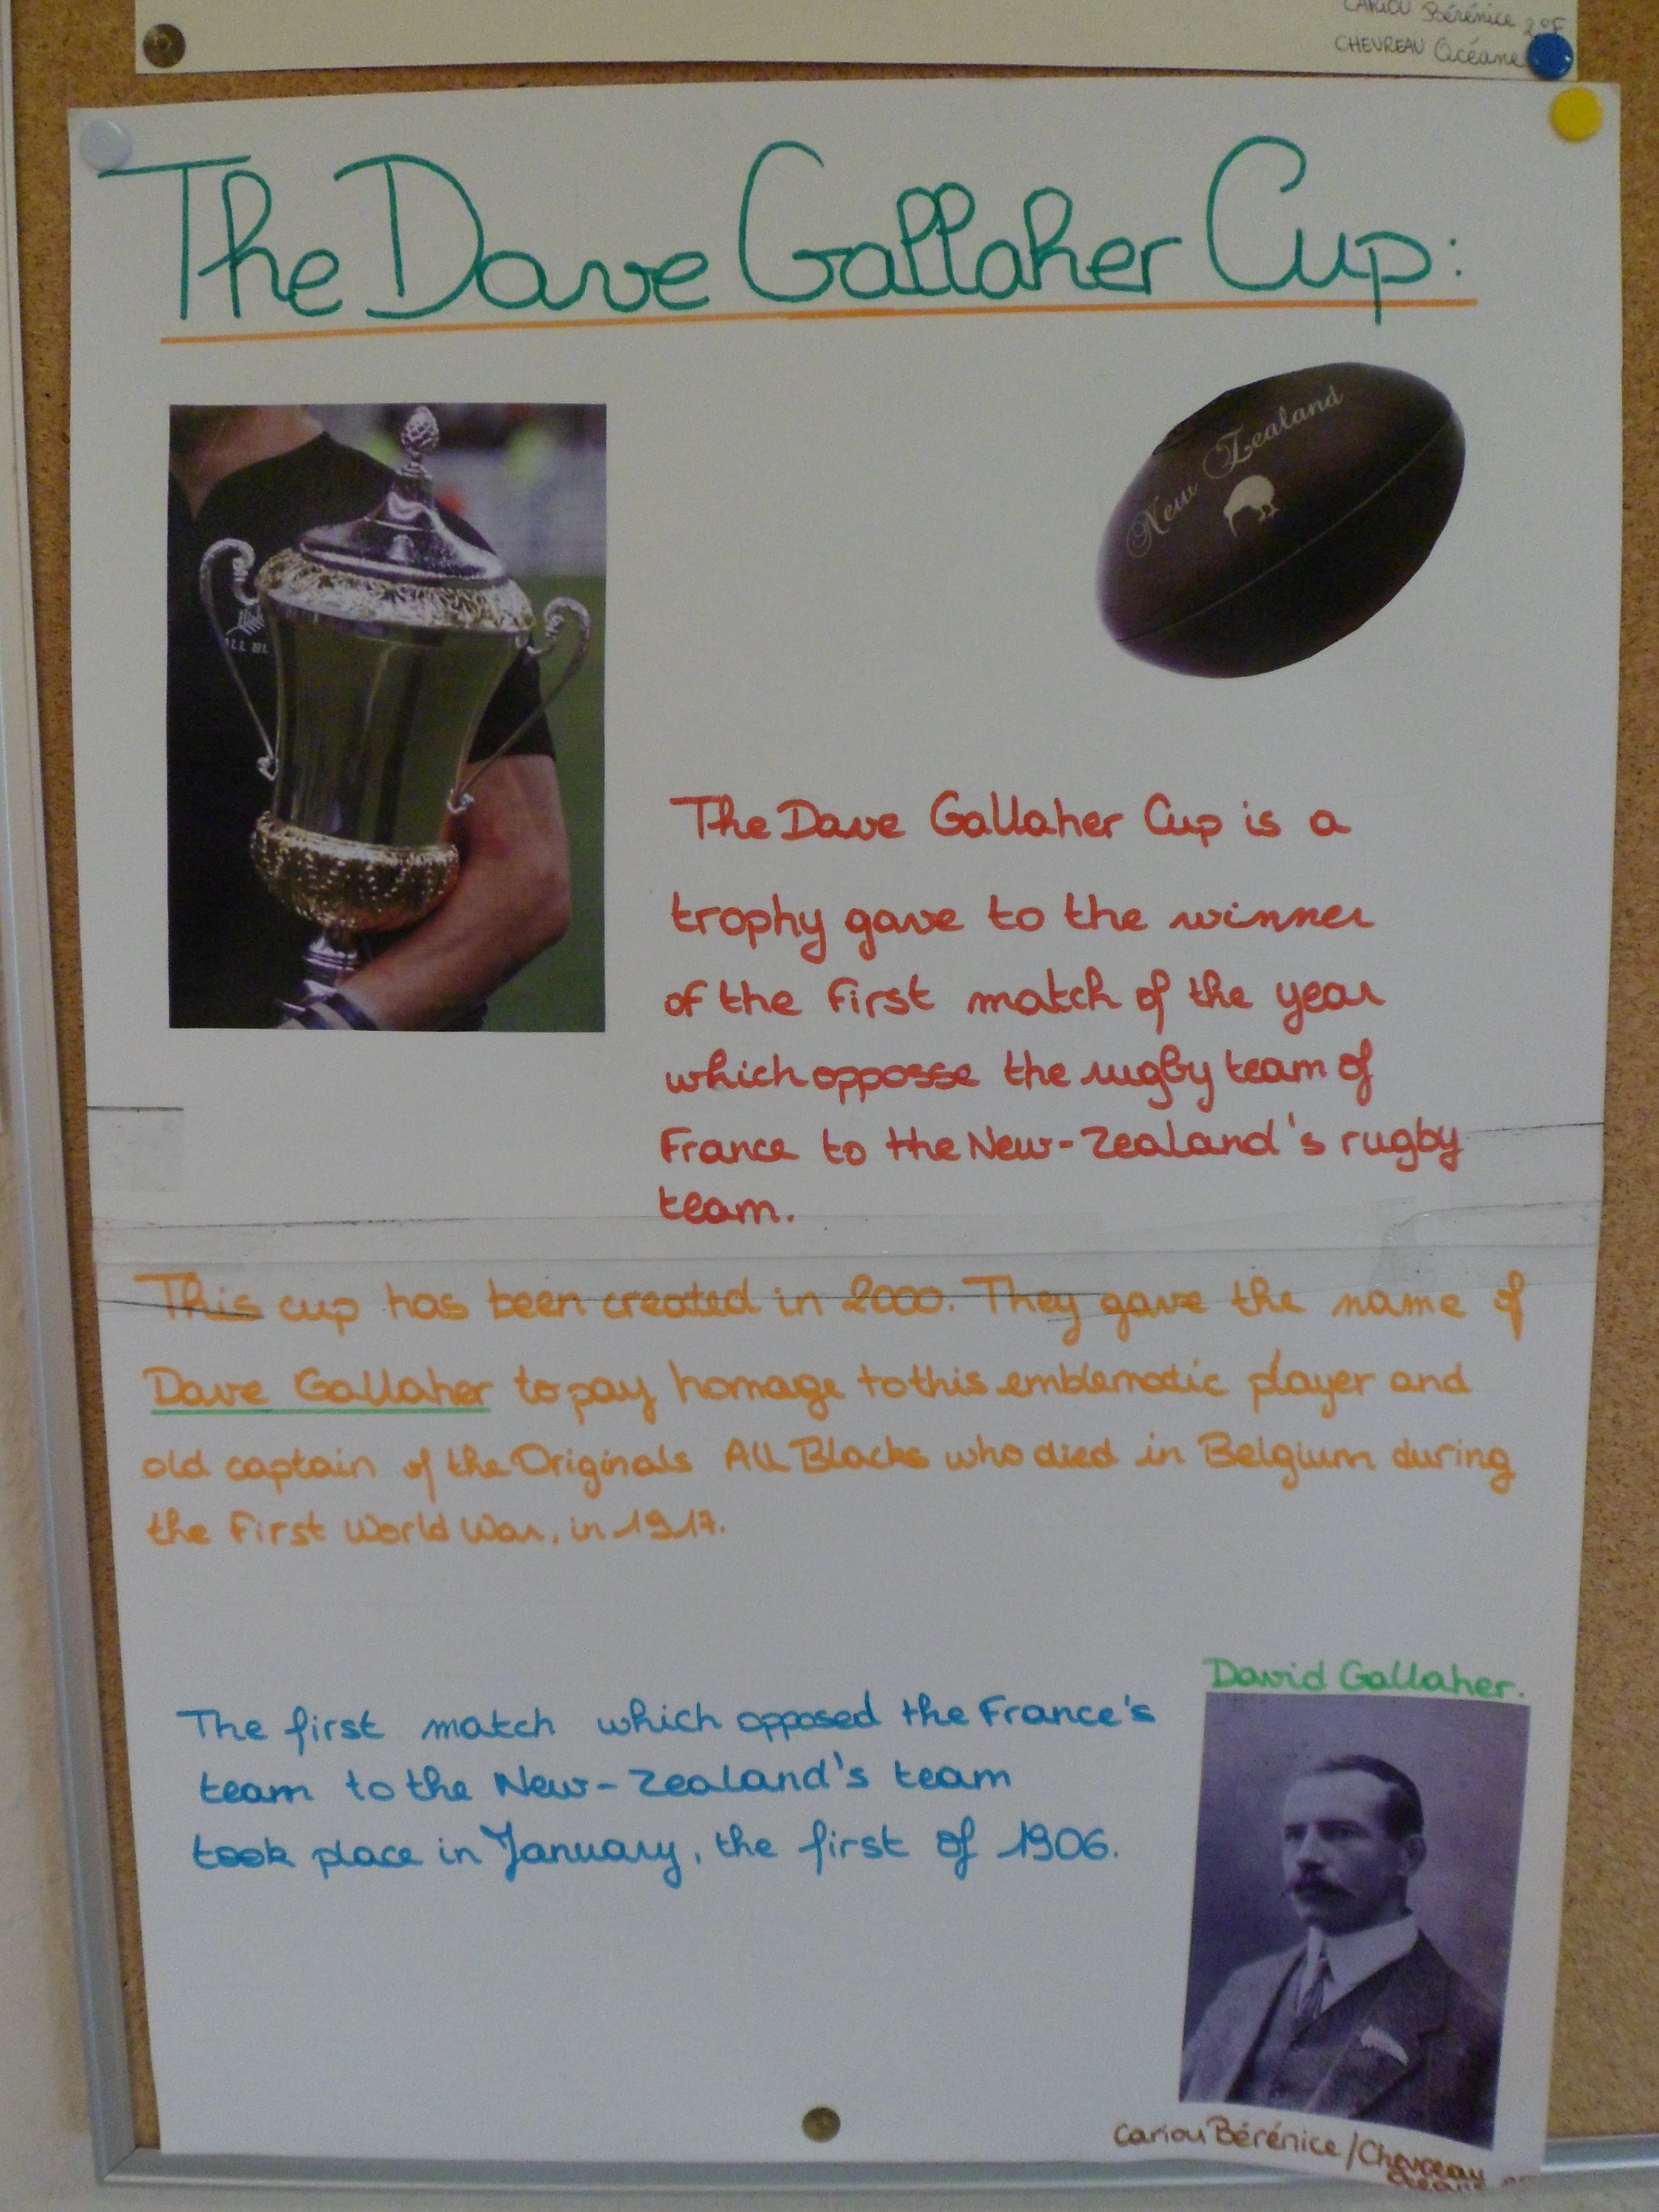 CARIOU Bérénice 2°F
CHEVREAU Océane
The Dave Gallaher Cup:
New Zealand
ALL BL
The Dave Gallaher Cup is a
trophy gave to the winner
of the first match of the year
which opposse the rugby team of
France to the New-Zealand's rugby
team.
This cup has been created in 2000. They gave the name of
Dave Gallaher to pay homage to this emblematic player and
old captain of the Originals All Blacks who died in Belgium during
the First World War, in 1917.
David Gallaher.
The first match which opposed the France's
team to the New-Zealand's team
took place in January, the first of 1906.
Cariou Bérénice / Chevreau
Océane